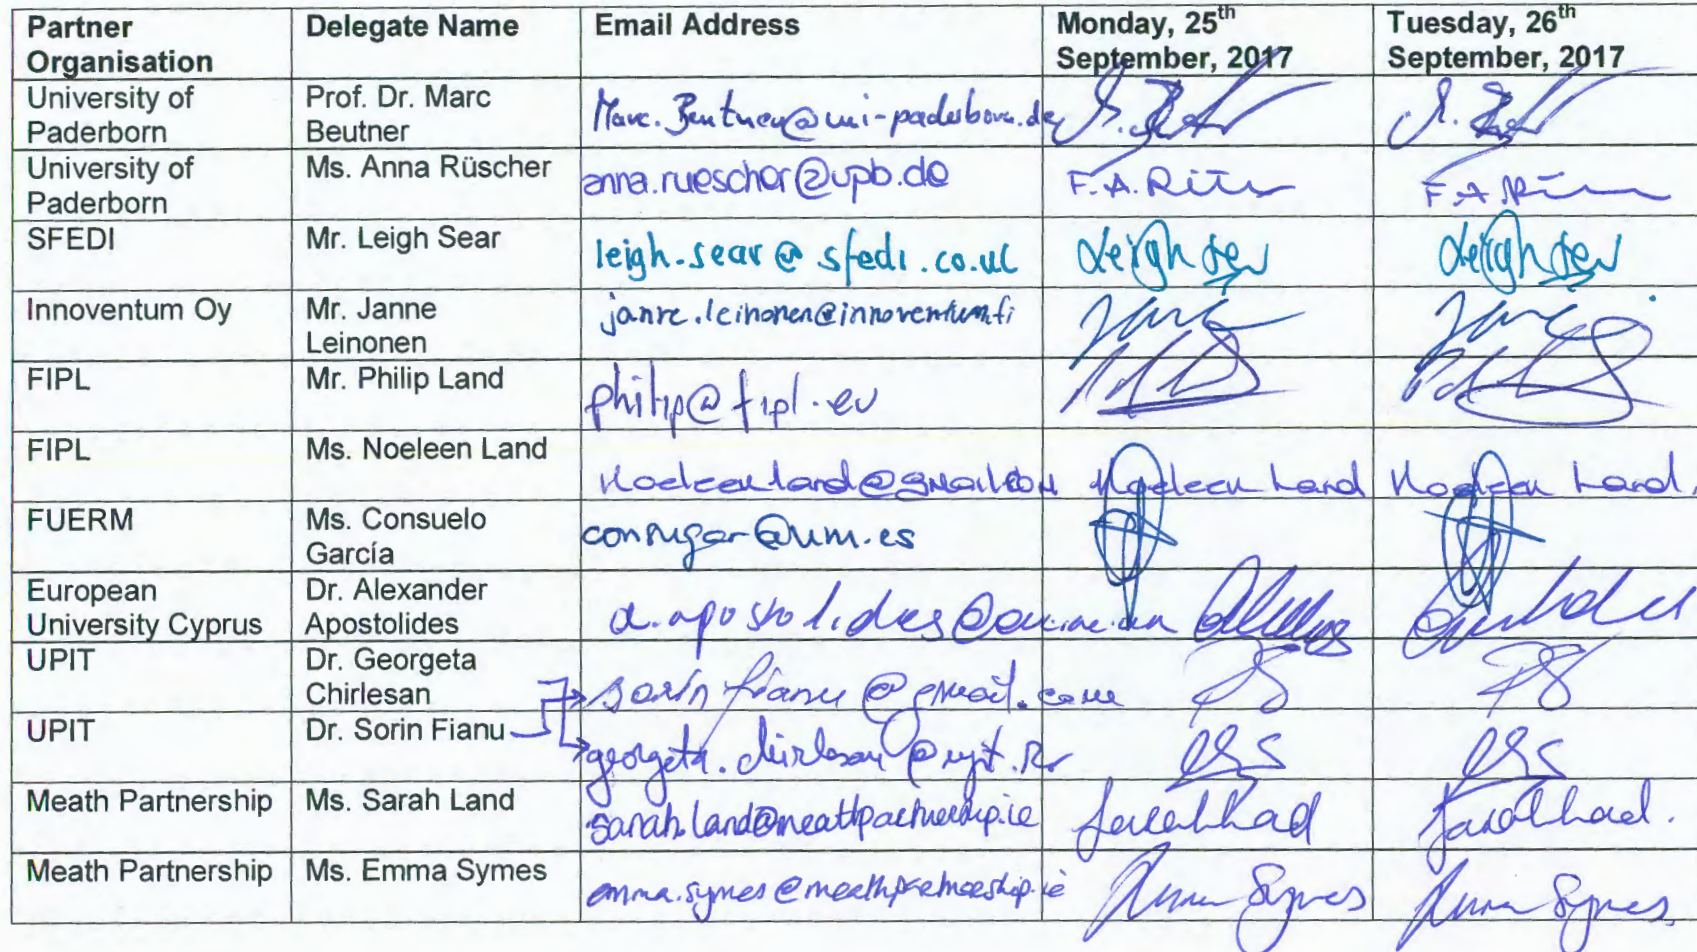 Partner Organisation Delegate Name Email Address Monday, 25th September, 2017 Tuesday, 26th September, 2017
University of Paderborn Prof. Dr. Marc Beutner Marc.Beutner@uni-paderborn.de
University of Paderborn Ms. Anna Rüscher anna.ruescher@upb.de F.A. F.A.
SFEDI Mr. Leigh Sear leigh.sear@sfedi.co.uk Leigh Sear Leigh Sear
Innoventum Oy Mr. Janne Leinonen janne.leinonen@innoventum.fi
FIPL Mr. Philip Land philip@fipl.eu
FIPL Ms. Noeleen Land Noeleenland@gmail.com Noeleen Land Noeleen Land.
FUERM Ms. Consuelo García consugar@um.es
European University Cyprus Dr. Alexander Apostolides
UPIT Dr. Georgeta Chirlesan sorinfianu@gmail.com
UPIT Dr. Sorin Fianu georgeta.chirlesan@upit.ro
Meath Partnership Ms. Sarah Land sarah.land@meathpartnership.ie
Meath Partnership Ms. Emma Symes emma.symes@meathpartnership.ie Emma Symes Emma Symes